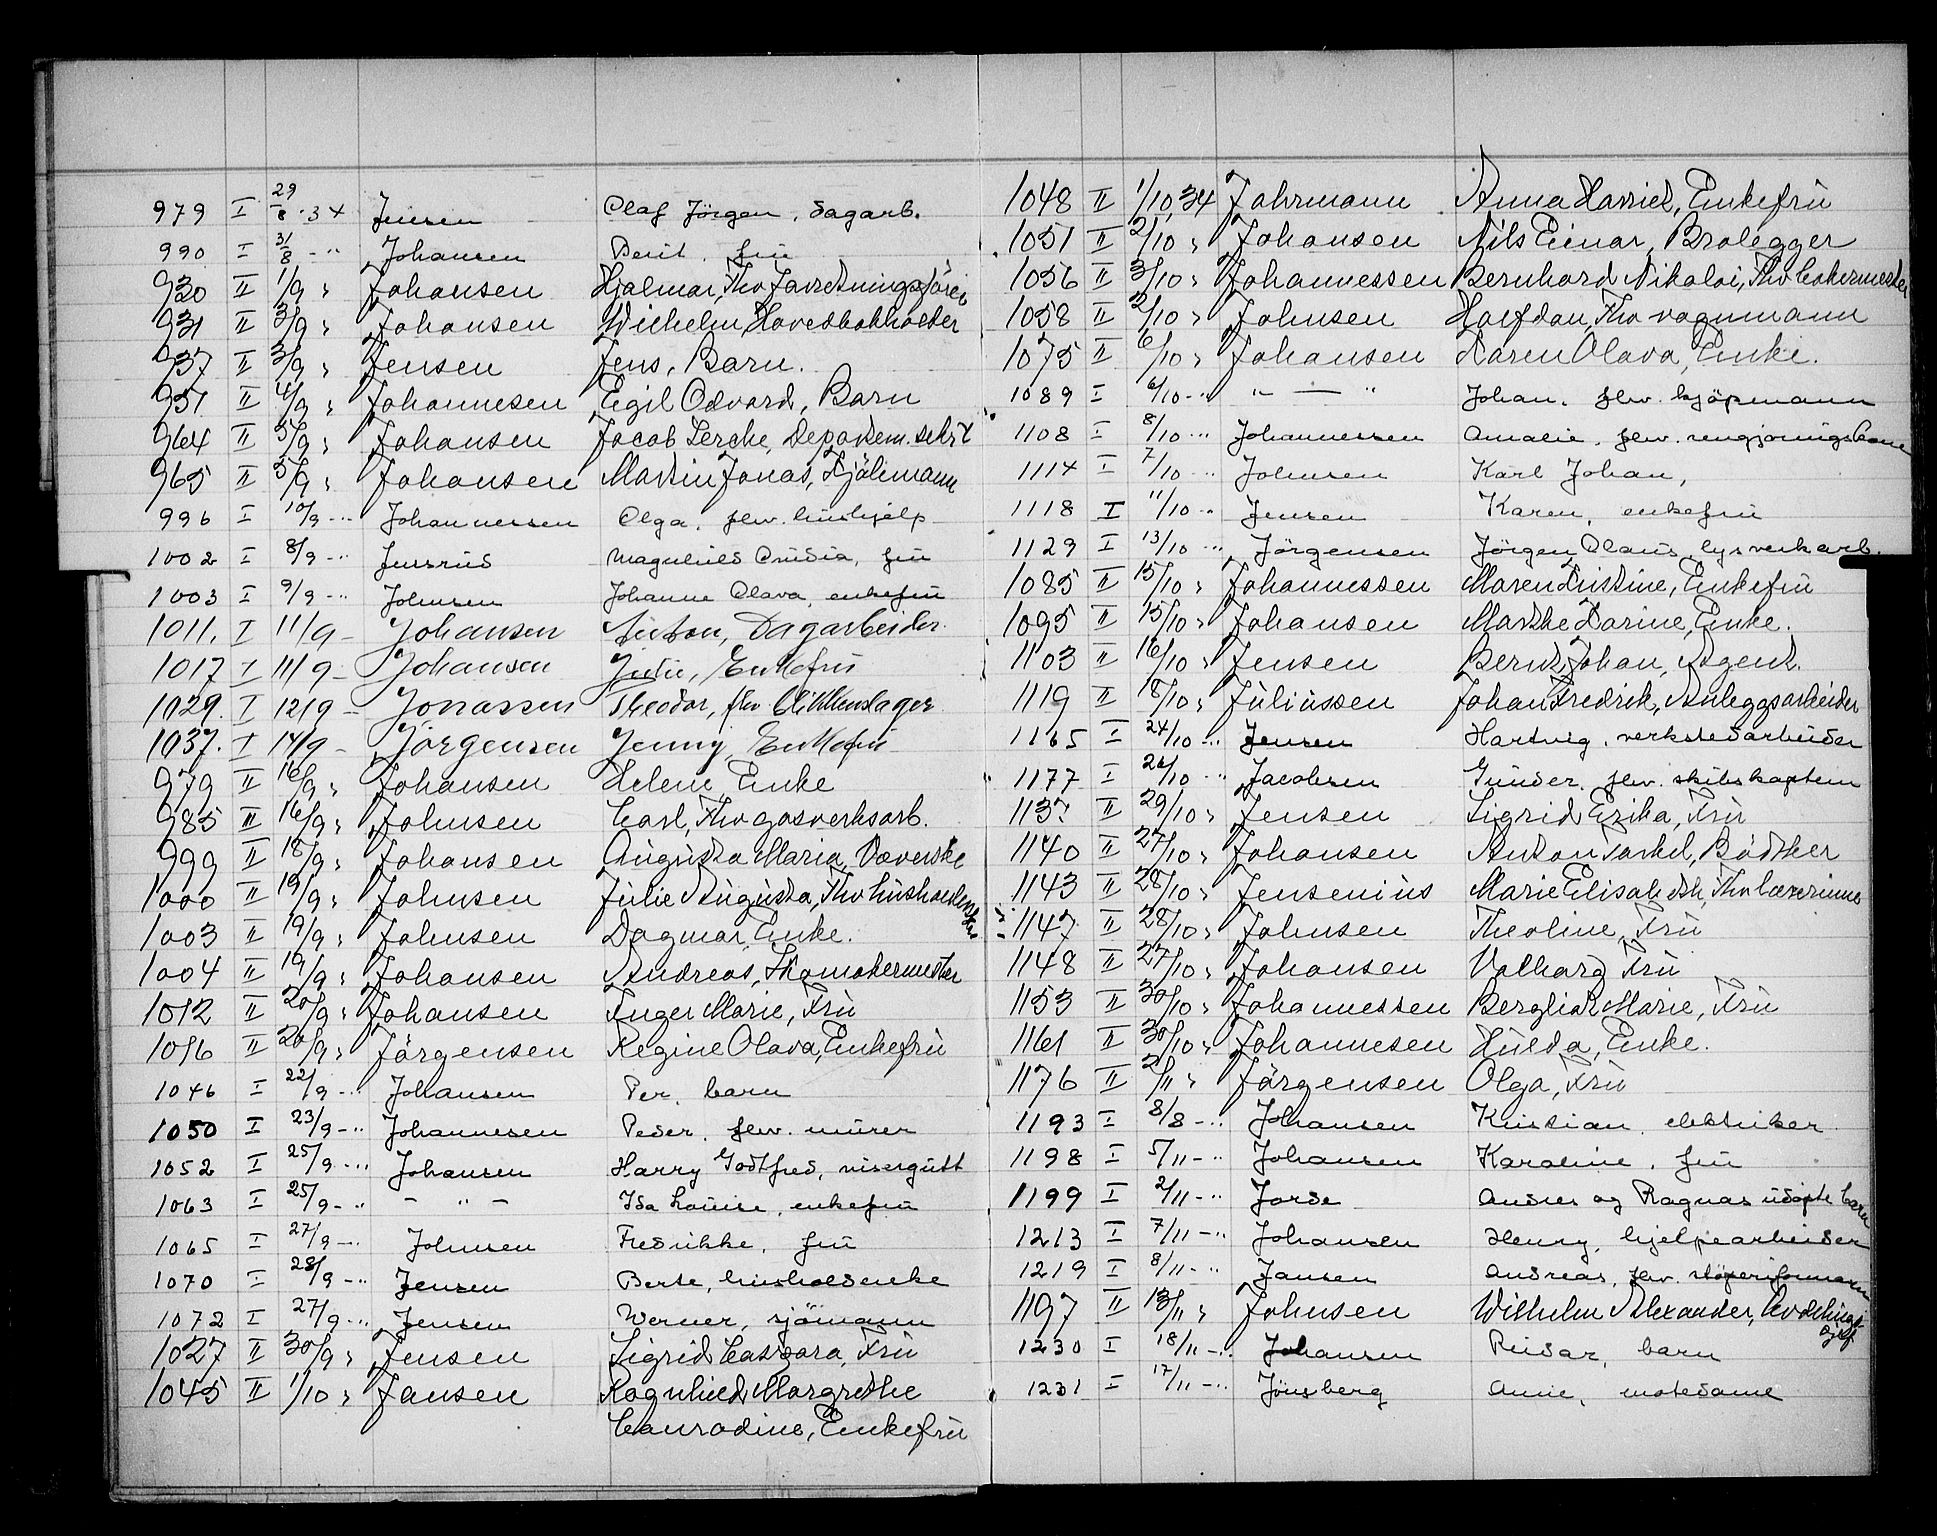 979 I 29/8 - 34 Jensen Olaf Jörgen, sagarb.
990 I 31/8 - " Johansen Berit, fru
930 II 1/9 " Johansen Hjalmar, Fhv forretningsförer
931 II 3/9 " Johansen Wilhelm Hovedbokholder
937 II 3/9 " Jensen Jens, Barn.
951 II 4/9 " Johannesen Egil Edvard, Barn
964 II 5/9 " Johansen Jacob Lerche, Departem.sekr.
965 II 5/9 " Johansen Martin Jonas, Kjölimann
996 I 10/9 - " Johannessen Olga, fhv. hushjelp
1002 I 8/9 - " Jensrud Magnhild, fru
1003 I 9/9 - " Johnsen Johanne Olava, enkefru
1011. I 11/9 - Johansen Anton, Dagarbeider.
1017 I 11/9 - Johansen Julie, Enkefru
1029. I 12/9 - Jonassen Theodor, fhv
1037. I 14/9 - Jörgensen Jenny, Enkefru
979 II 16/9 " Johansen Helene, Enke
985 II 16/9 " Johnsen Carl, Fhv gasverksarb.
999 II 18/9 " Johansen Augusta Maria, Væverske
1000 II 19/9 " Johnsen Julie Augusta, Fhv husholderske
1003 II 19/9 " Johnsen Dagmar, Enke.
1004 II 19/9 " Johansen Andreas, Skomakermester
1012 II 20/9 " Johansen Inger Marie, Fru
1016 II 20/9 " Jörgensen Regine Olava, Enkefru
1046 I 22/9 - " Johansen Per, barn
1050 I 23/9 - " Johannesen Peder, fhv. murer
1052 I 25/9 - " Johansen Harry Godtfred, visergutt
1063 I 25/9 - " - " - Ida Louise, enkefru
1065 I 27/9 - " Johnsen Fredrikke, fru
1070 I 28/9 - " Jensen Berte, husholdenke
1072 I 27/9 - " Jensen Werner, sjömann
1027 II 30/9 " Jensen Sigrid Caspara, Fru
1045 II 1/10 " Jansen Ragnhild Margrethe
Conradine, Enkefru
1048 II 1/10 34 Johrmann Anna Harriet, Enkefru
1051 II 2/10 " Johansen Nils Einar, Brolegger
1056 II 3/10 " Johannessen Bernhard Nikolai, Fhv bakermester
1058 II 2/10 " Johnsen Halfdan, Fhv vognmann
1075 II 6/10 " Johansen Karen Olava, Enke.
1089 I 6/10 - " " — " Johan, fhv. kjöpmann
1108 I 8/10 - " Johannessen Amalie, fhv. rengjöringskone
1114 I 7/10 - " Johnsen Karl Johan,
1118 I 11/10 - " Jensen Karen, enkefru
1129 I 13/10 - " Jörgensen Jörgen Olaus, lysverkarb.
1085 II 15/10 " Johannessen Maren Kristine, Enkefru
1095 II 15/10 " Johansen Marthe Karine, Enke.
1103 II 16/10 " Jensen Bernt Johan, Agent.
1119 II 18/10 " Juliussen Johan Fredrik, Anleggsarbeider
1165 I 24/10 - " Jensen Hartvig, verkstedarbeider
1177 I 26/10 - " Jacobsen Gunder, fhv. skibskaptein
1137 II 29/10 " Jensen Sigrid Erika, Fru
1140 II 27/10 " Johansen Anton Torkel, Bödker
1143 II 28/10 " Jensenius Marie Elisabeth, Fhv lærerinne
1147 II 28/10 " Johnsen Theoline, Fru
1148 II 27/10 " Johansen Valborg Fru
1153 II 30/10 " Johannessen Bergliot Marie, Fru
1161 II 30/10 " Johannesen Hulda, Enke.
1176 II 2/11 " Jörgensen Olga, Fru
1193 I 8/8 - " Johansen Kristian, elektriker
1198 I 5/11 - " Johansen Karoline, fru
1199 I 2/11 - " Jorde Anders og Ragnas udöpte barn
1213 I 7/11 - " Johansen Henry, hjelpearbeider
1219 I 8/11 - " Jansen Andreas, fhv. stöperiformann
1197 II 13/11 " Johnsen Wilhelm Alexander,
1230 I 18/11 - " Johansen Reidar, barn
1231 I 17/11 - " Jönsberg Anie, motedame